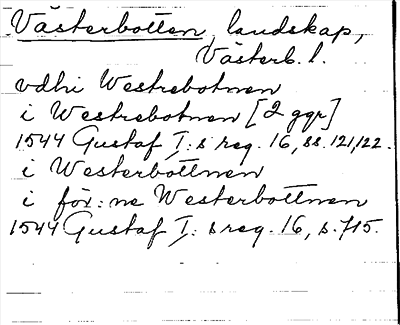 Västerbotten, landskap,
Västerb. l.
vdhi Westrebotnen
i Westrebotnen [2 ggr]
1544 Gustaf I:s reg. 16, ss. 121, 122.
i Westerbottnen
i för:ne Westerbottnen
1544 Gustaf I:s reg. 16, s. 715.